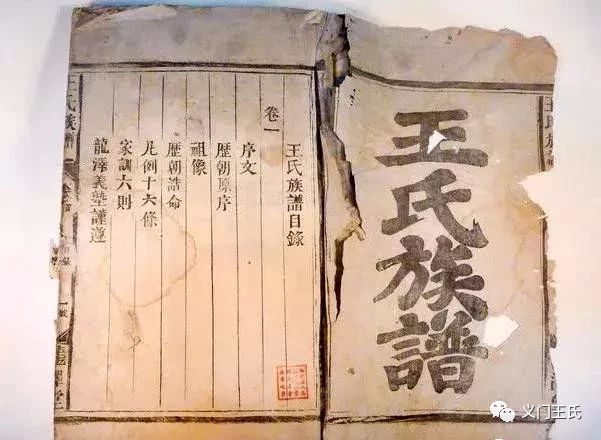 王氏族譜
王氏族譜目錄
卷一
序文
歷朝原序
祖像
歷朝誥命
凡例十六條
家訓六則
龍澤義塾謹遵
王氏族譜
义门王氏